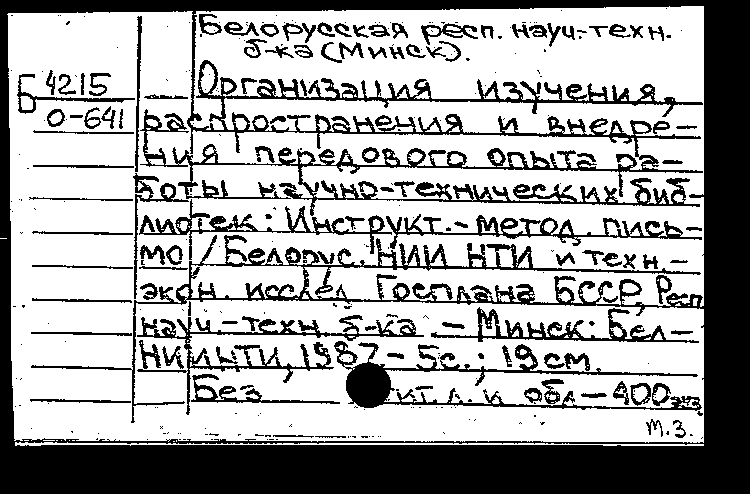 Белорусская респ. науч.-техн.
б-ка (Минск).
Б 4215
О-641
Организация изучения,
распространения и внедре-
ния передового опыта ра-
боты научно-технических биб-
лиотек: Инструкт.-метод. пись-
мо / Белорус. НИИ НТИ и техн.-
экон. исслед. Госплана БССР, Респ.
науч.-техн. б-ка. - Минск: Бел-
НИИНТИ, 1987. - 5с.; 19см.
Без тит. л. и обл - 400 экз.
м.з.